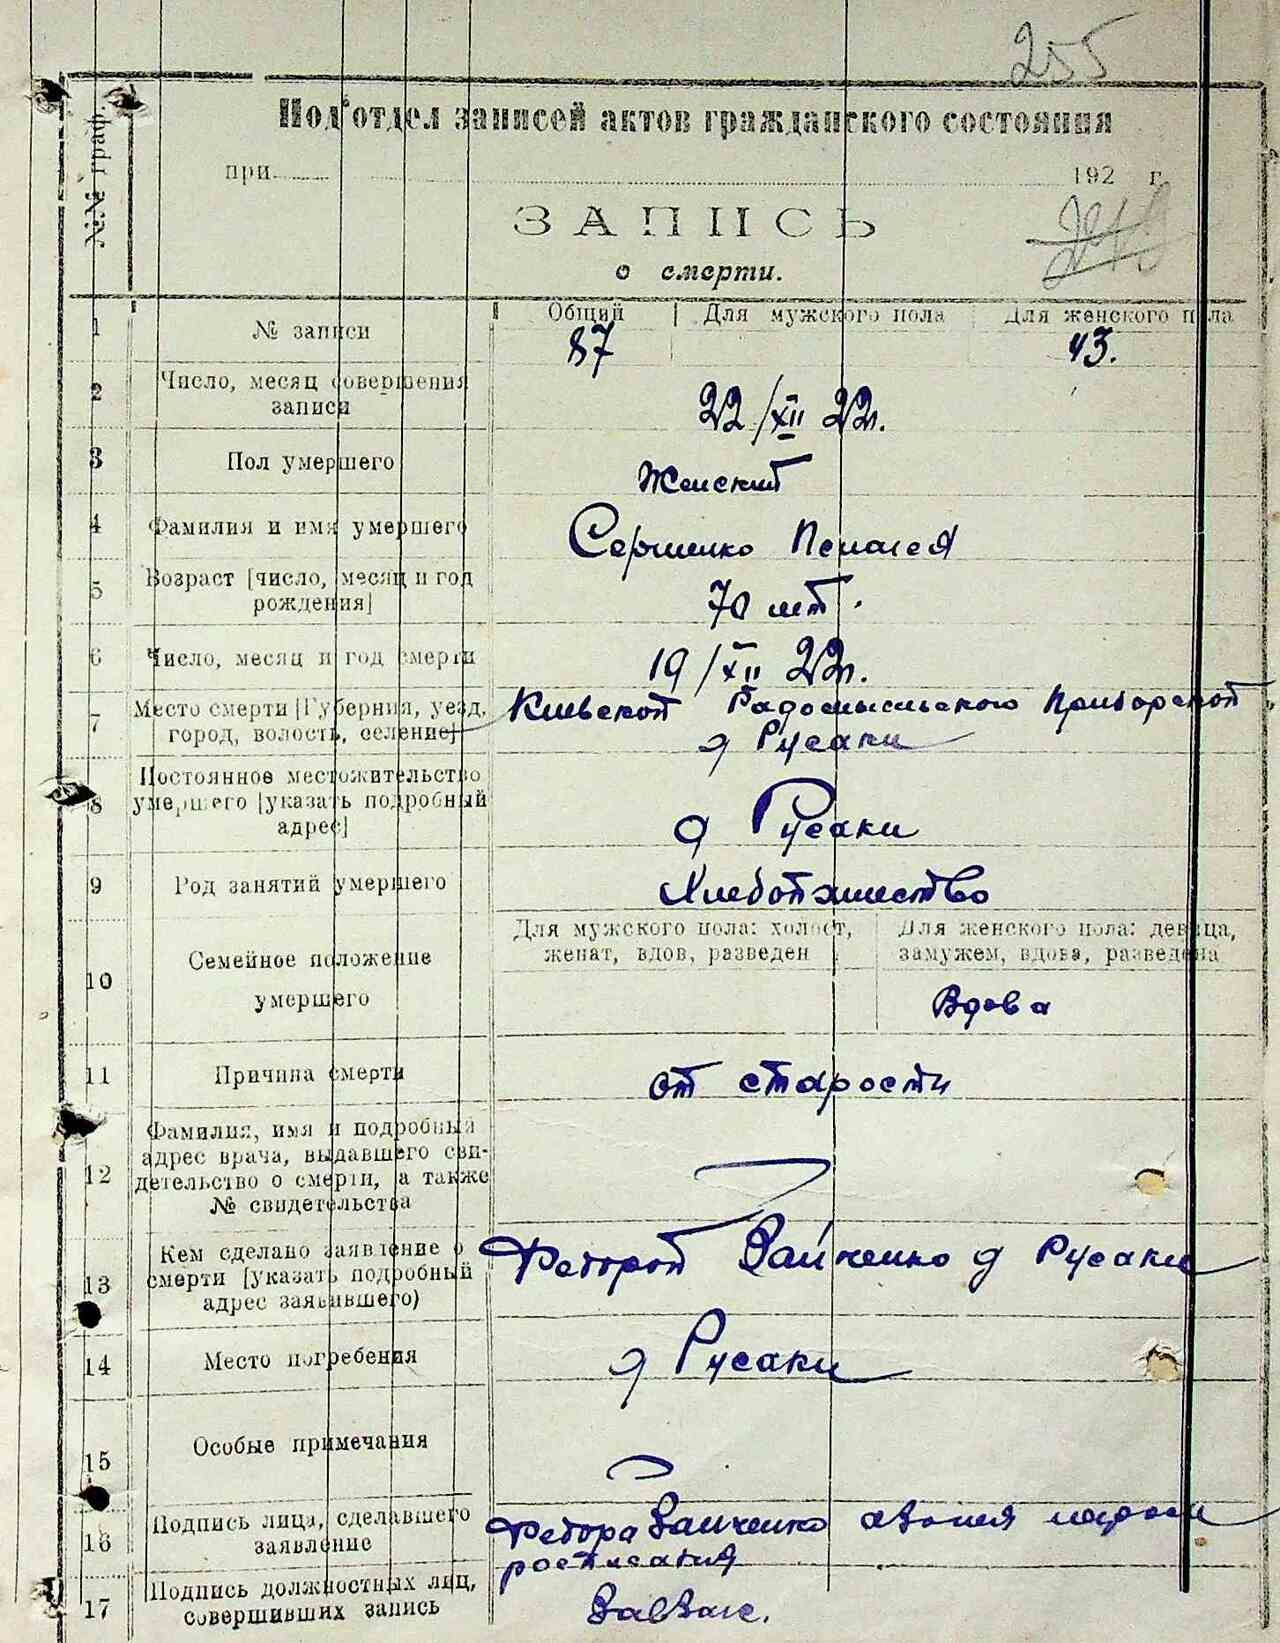 255
Подотдел записей актов гражданского состояния
при 192 г.
ЗАПИСЬ
о смерти.
№№ граф
Общий Для мужского пола Для женского пола
1 № записи 87 43.
2 Число, месяц совершения
записи
22/XII 22г.
3 Пол умершего Женский
4 Фамилия и имя умершего Сергиенко Пелагея
5 Возраст [число, месяц и год
рождения]
70 лет.
6 Число, месяц и год смерти 19/XII 22г.
7 Место смерти [Губерния, уезд,
город, волость, селение]
Киевской Радомысльского Приборской
д Русаки
8 Постоянное местожительство
умершего [указать подробный
адрес]
д Русаки
9 Род занятий умершего Хлебопашество
10 Семейное положение
умершего
Для мужского пола: холост,
женат, вдов, разведен
Для женского пола: девица,
замужем, вдова, разведена
Вдова
11 Причина смерти от старости
12 Фамилия, имя и подробный
адрес врача, выдавшего сви-
детельство о смерти, а также
№ свидетельства
13 Кем сделано заявление о
смерти [указать подробный
адрес заявившего)
Федорой Зайченко д Русаки
14 Место погребения д Русаки
15 Особые примечания
16 Подпись лица, сделавшего
заявление
Федора Зайченко
17 Подпись должностных лиц,
совершивших запись
ЗавЗаг.